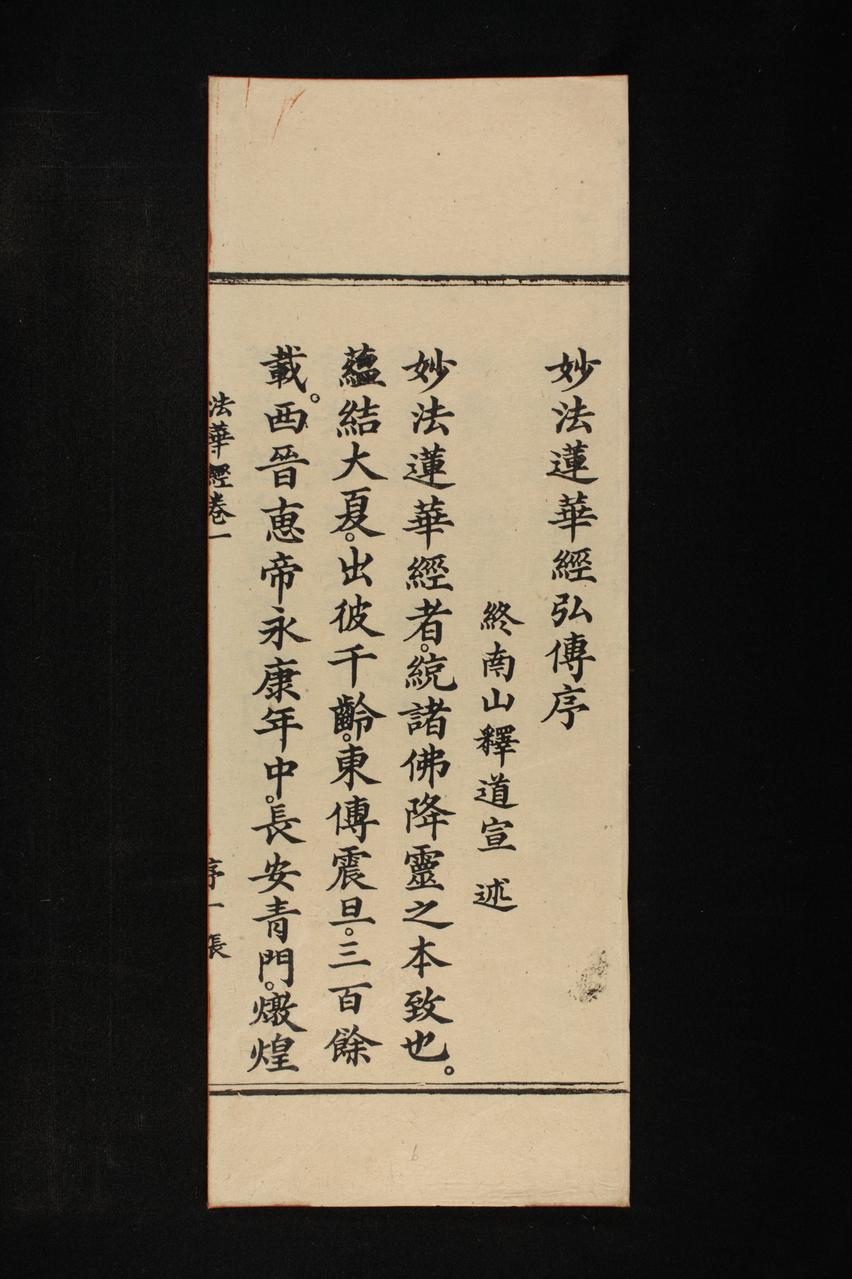 妙法蓮華經弘傳序
終南山釋道宣 述
妙法蓮華經者。統諸佛降靈之本致也。
蘊結大夏。出彼千齡。東傳震旦。三百餘
載。西晉惠帝永康年中。長安青門。燉煌
法華經卷一 序一張